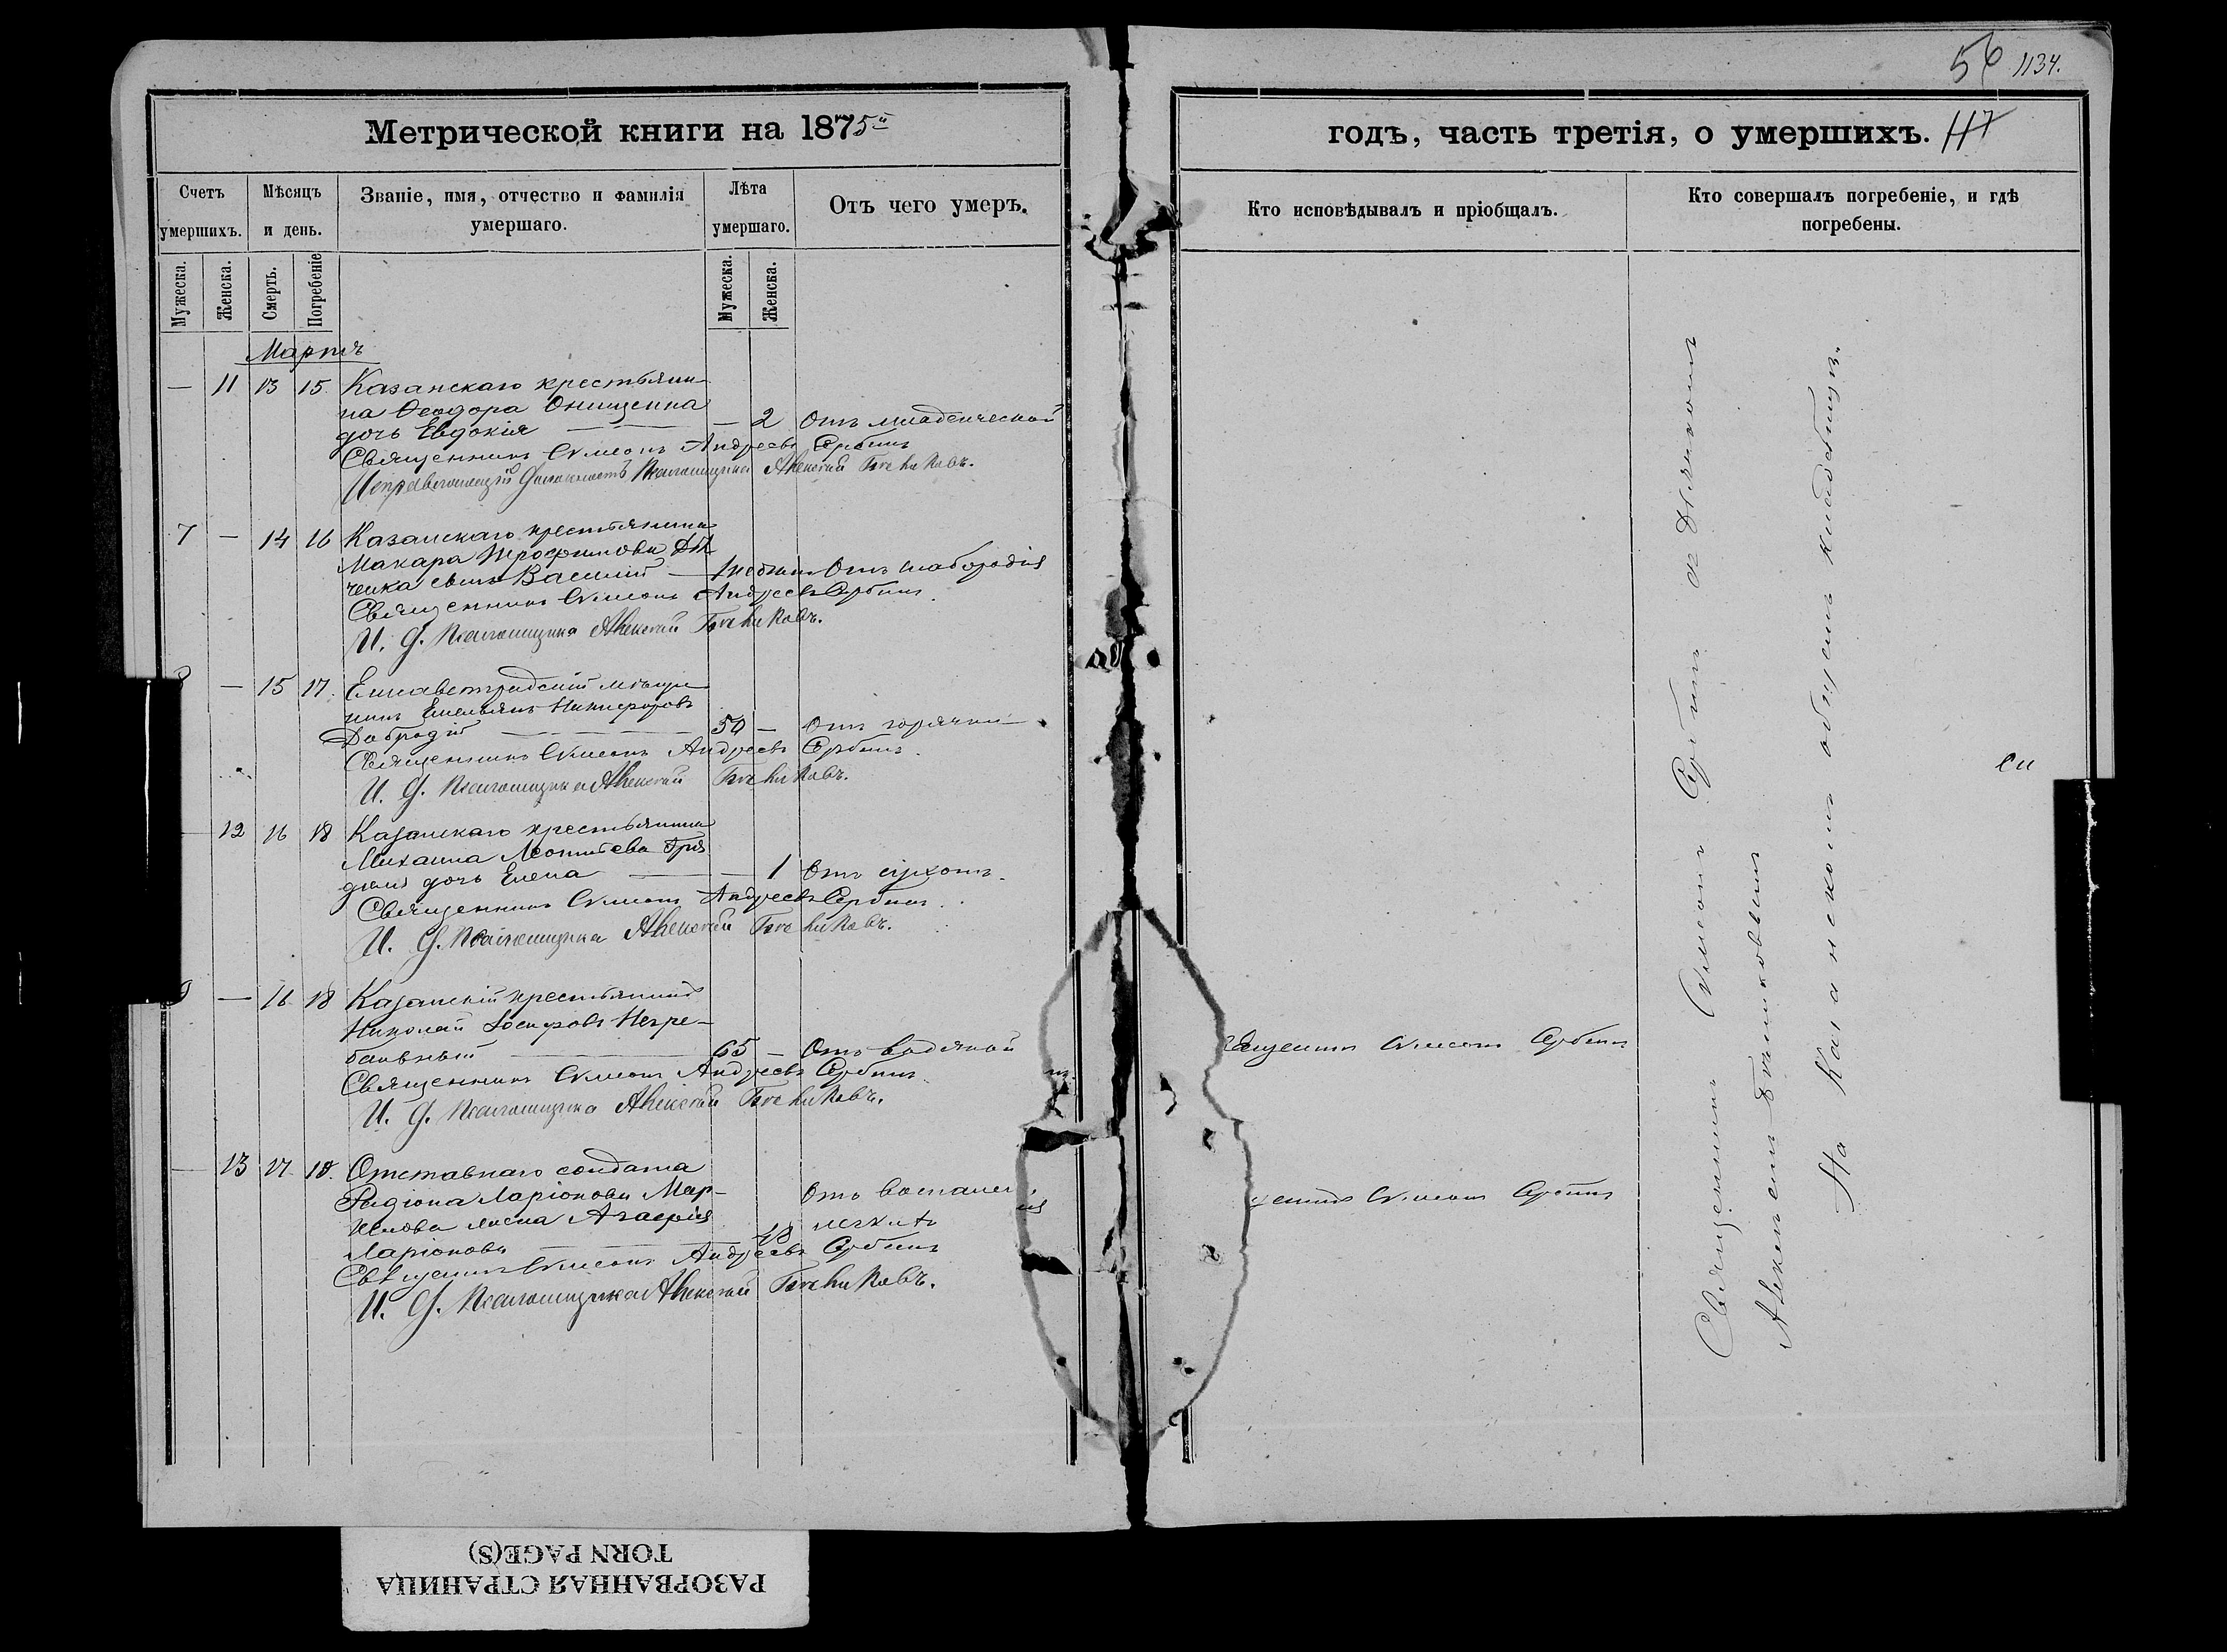 56 1134.
Метрической книги на 1875й
годъ, часть третія, о умершихъ. 117
Счетъ умершихъ.
Мѣсяцъ и день.
Званіе, имя, отчество и фамилія умершаго.
Лѣта умершаго.
Отъ чего умеръ.
Кто исповѣдывалъ и пріобщалъ.
Кто совершалъ погребеніе, и гдѣ погребены.
Мужеска. Женска. Смерть. Погребеніе Мужеска. Женска.
Мартъ
— 11 13 15 Казанскаго крестьяни-
на Ѳеодора Онищенка
дочь Евдокія — 2 Отъ младенческой
Священникъ Симеонъ Андреевъ Сербинъ
Исправляющій должность Псаломщика Алексѣй
7 — 14 16 Казанскаго крестьянина
Макара Трофимова Дя
ченка сынъ Василій — Отъ слабородія
Священникъ Симеонъ Андреевъ Сербинъ.
И. д. Псаломщика Алексѣй
— 15 17. Елисаветградскій мѣща-
нинъ Емельянъ Никифоровъ
Добродій — 50 — Отъ горячки
Священникъ Симеонъ Андреевъ Сербинъ.
И. д. Псаломщика Алексѣй
12 16 18 Казанскаго крестьянина
Михаила Леонтьева
дочь Елена — 1 Отъ сухотъ.
Священникъ Симеонъ Андреевъ Сербинъ.
И. д. Псаломщика Алексѣй
9 — 16 18 Казанскій крестьянинъ
Николай Іосифовъ Непре-
65 — Отъ водяной
Священникъ Симеонъ Андреевъ Сербинъ.
И. д. Псаломщика Алексѣй
13 17 18. Отставнаго солдата
Родіона Ларіонова Мар-
жена Агафія
Ларіонова — 48 Отъ воспаленія легкихъ
Священникъ Симеонъ Андреевъ Сербинъ
И. д. Псаломщика Алексѣй
Симеонъ Сербинъ
Симеонъ Сербинъ
Священникъ Симеонъ Сербинъ съ Дьячкомъ
Алексѣемъ
На Казанскомъ общемъ кладбищѣ.
РАЗОРВАННАЯ СТРАНИЦА
TORN PAGE(S)